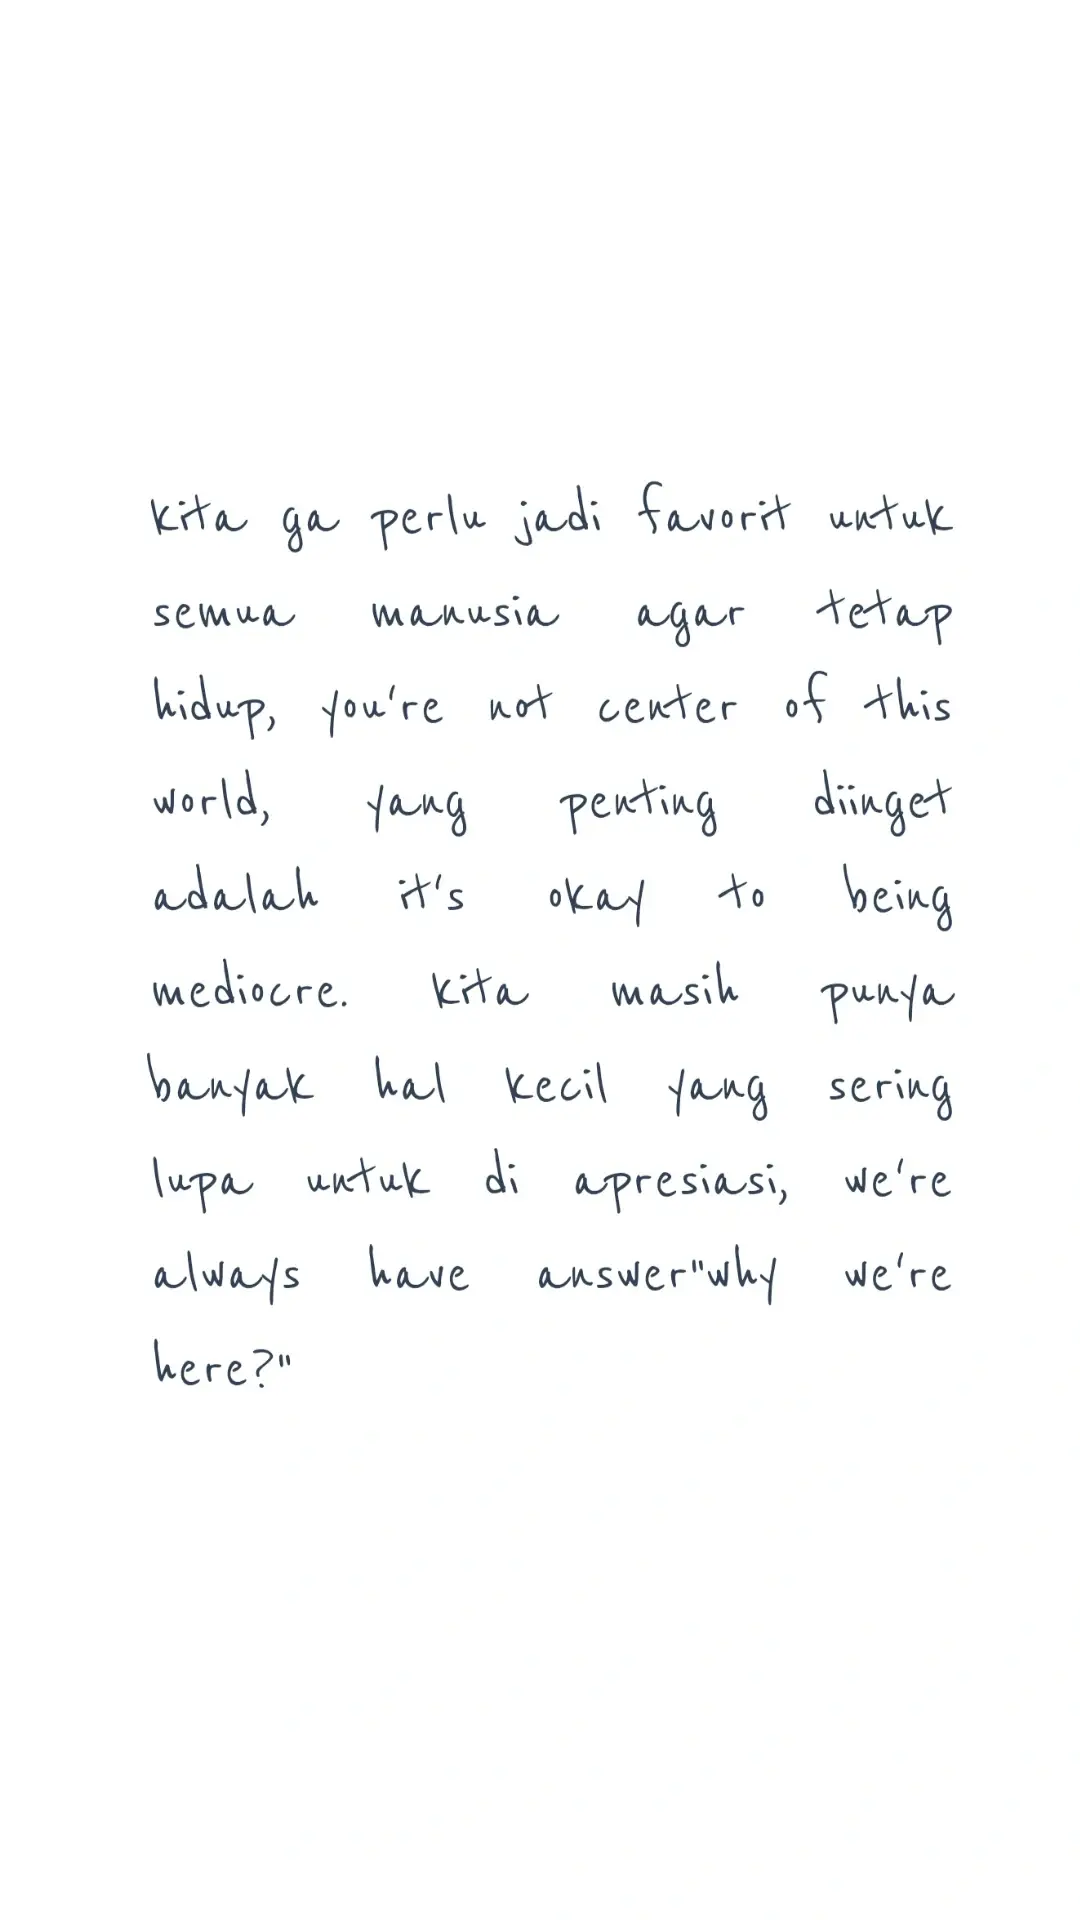 kita ga perlu jadi favorit untuk
semua manusia agar tetap
hidup, you're not center of this
world, yang penting diinget
adalah it's okay to being
mediocre. kita masih punya
banyak hal kecil yang sering
lupa untuk di apresiasi, we're
always have answer"why we're
here?"